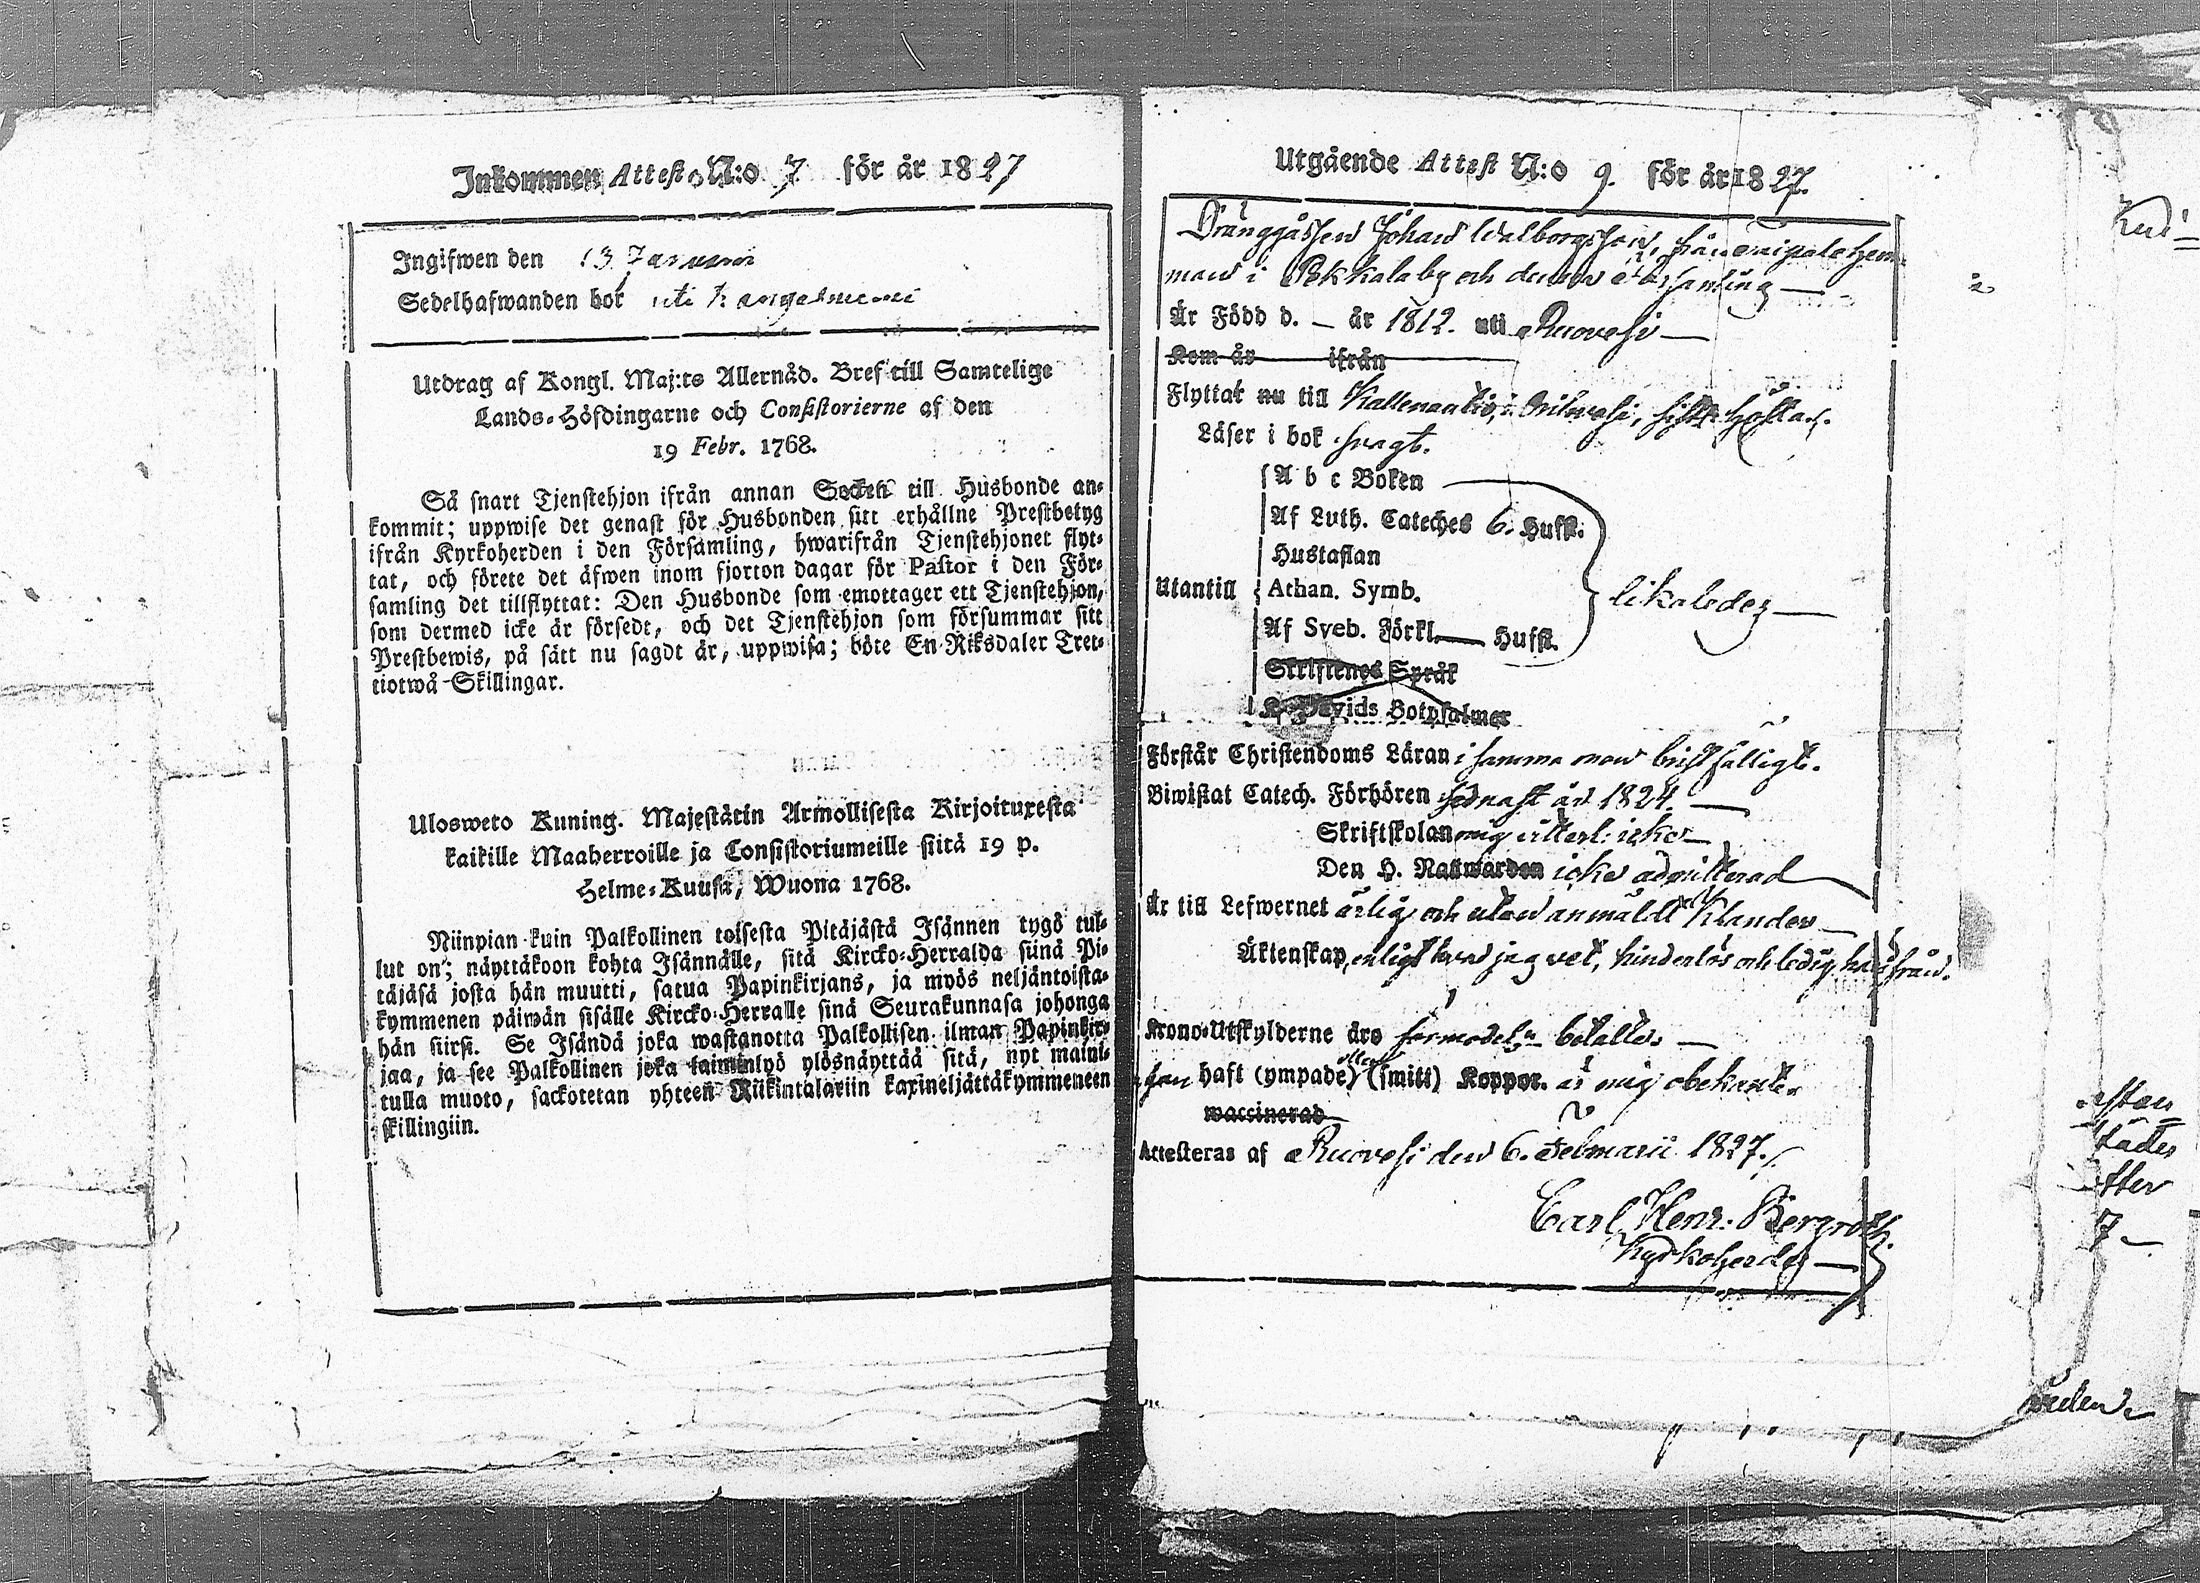 Inkommen Attest N:o 7 för år 1827
Ingifwen den 13 Januarii
Sedelhafwanden bor uti
Utdrag af Kongl. Maj:ts Allernåd. Bref till Samtelige
Lands-Höfdingarne och Consistorierne af den
19 Febr. 1768.
Så snart Tjenstehjon ifrån annan Socken till Husbonde an-
kommit; uppwise det genast för Husbonden sitt erhållne Prestbetyg
ifrån Kyrkoherden i den Församling, hwarifrån Tjenstehjonet flyt-
tat, och förete det äfwen inom fjorton dagar för Pastor i den För-
samling det tillflyttat: Den Husbonde som emottager ett Tjenstehjon,
som dermed icke är försedt, och det Tjenstehjon som försummar sitt
Prestbewis, på sätt nu sagdt är, uppwisa; böte En Riksdaler Tret-
tiotwå Skillingar.
Ulosweto Kuning. Majestätin Armollisesta Kirjoituxesta
kaikille Maaherroille ja Consistoriumeille siitä 19 p.
Helme-Kuusa, Wuona 1768.
Niinpian kuin Palkollinen toisesta Pitäjästä Isännen tygö tul-
lut on; näyttäkoon kohta Isännälle, sitä Kircko-Herralda siinä Pi-
täjäsä josta hän muutti, satua Papinkirjans, ja myös neljäntoista-
kymmenen päiwän sisälle Kircko-Herralle siná Seurakunnasa johonga
hän siirsi. Se Isändä joka wastanotta Palkollisen ilman Papinkir-
jaa, ja see Palkollinen joka laiminlyö ylösnäyttää sitä, nyt maini-
tulla muoto, sackotetan yhteen Riikintalariin kaxineljättäkymmeneen
skillingiin.
Utgående Attest N:o 9. för år 1827.
Drånggåssen Johan Walborgsson, från hem-
man i Pekkala by och denna Församling
Är Född d. — år 1812. uti Ruovesi
Kom år ifrån
Flyttat nu till i sistl. Höstas.
Läser i bok swagt.
A b c Boken
Af Luth. Cateches 6. Hufst.
Hustaflan
Utantill Athan. Symb. likaledes
Af Sveb. Förkl. Hufst.
Skriftenes Språk
K. Davids Botpsalmer
Förstår Christendoms Läran i samma mon bristfälligt.
Biwistat Catech. Förhören sednast år 1824.
Skriftskolan mig vitterl: icke
Den H. Nattwarden icke admitterad
Är till Lefwernet ärlig och utan anmäldt Klander
Äktenskap, enligt hwad jag vet, hinderlös och ledig härifrån.
Krono-Utskylderne äro förmodel:n betalte.
han haft (ympade) eller (smitt) Koppor. är mig obekant.
waccinerad
Attesteras af Ruovesi den 6. Februarii 1827.
Carl Henr. Bergroth
Kyrkoherde